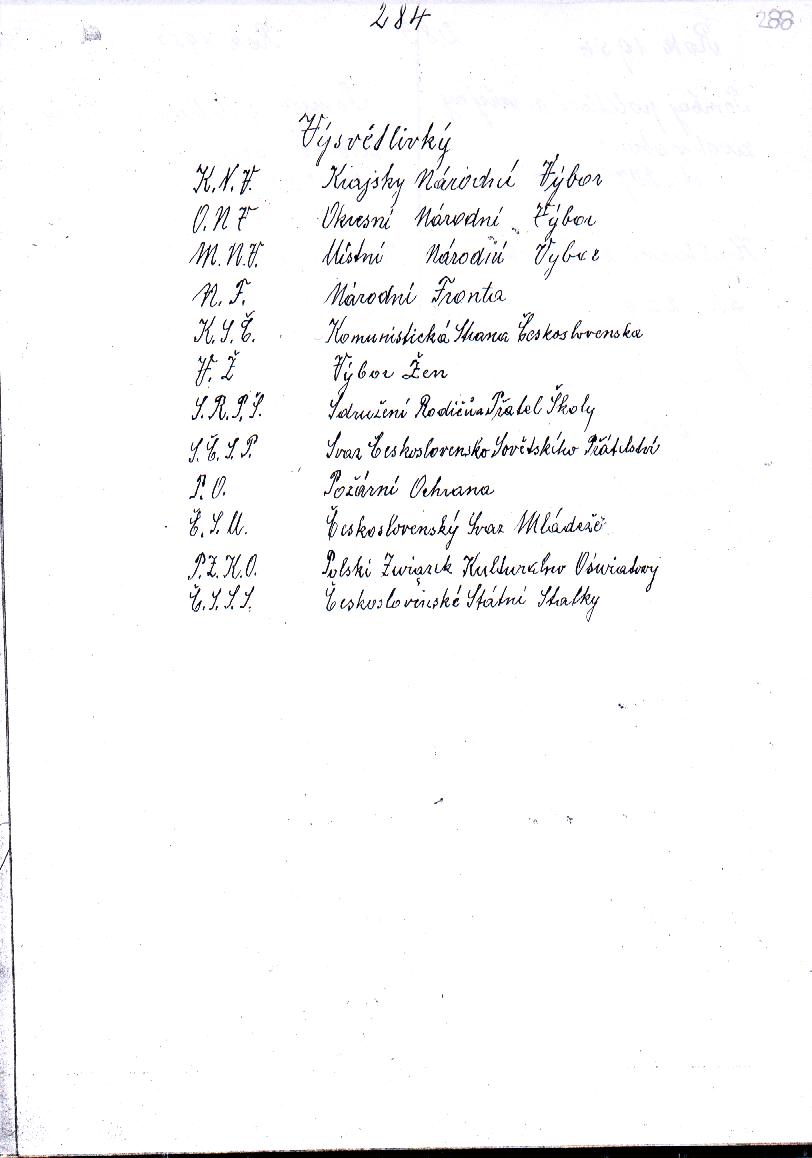 284
288
Výsvětlivký
K.N.V. Krajsky Národní Výbor
O.N.V Okresní Národní Výbor
M.N.V. Místní Národní Výbor
N.F. Národní Fronta
K.S.Č. Komunistická Strana Československa
V.Ž Výbor Žen
S.R.P.Š. Sdružení Rodičů a Přatel Školy
S.Č.S.P. Svaz Československo Sovětského Přátelství
P.O. Požární Ochrana
Č.S.M. Československý Svaz Mládeže
P.Z.K.O. Polski Związek Kulturalno Oświatowy
Č.S.S.S. Československé Státní Statky